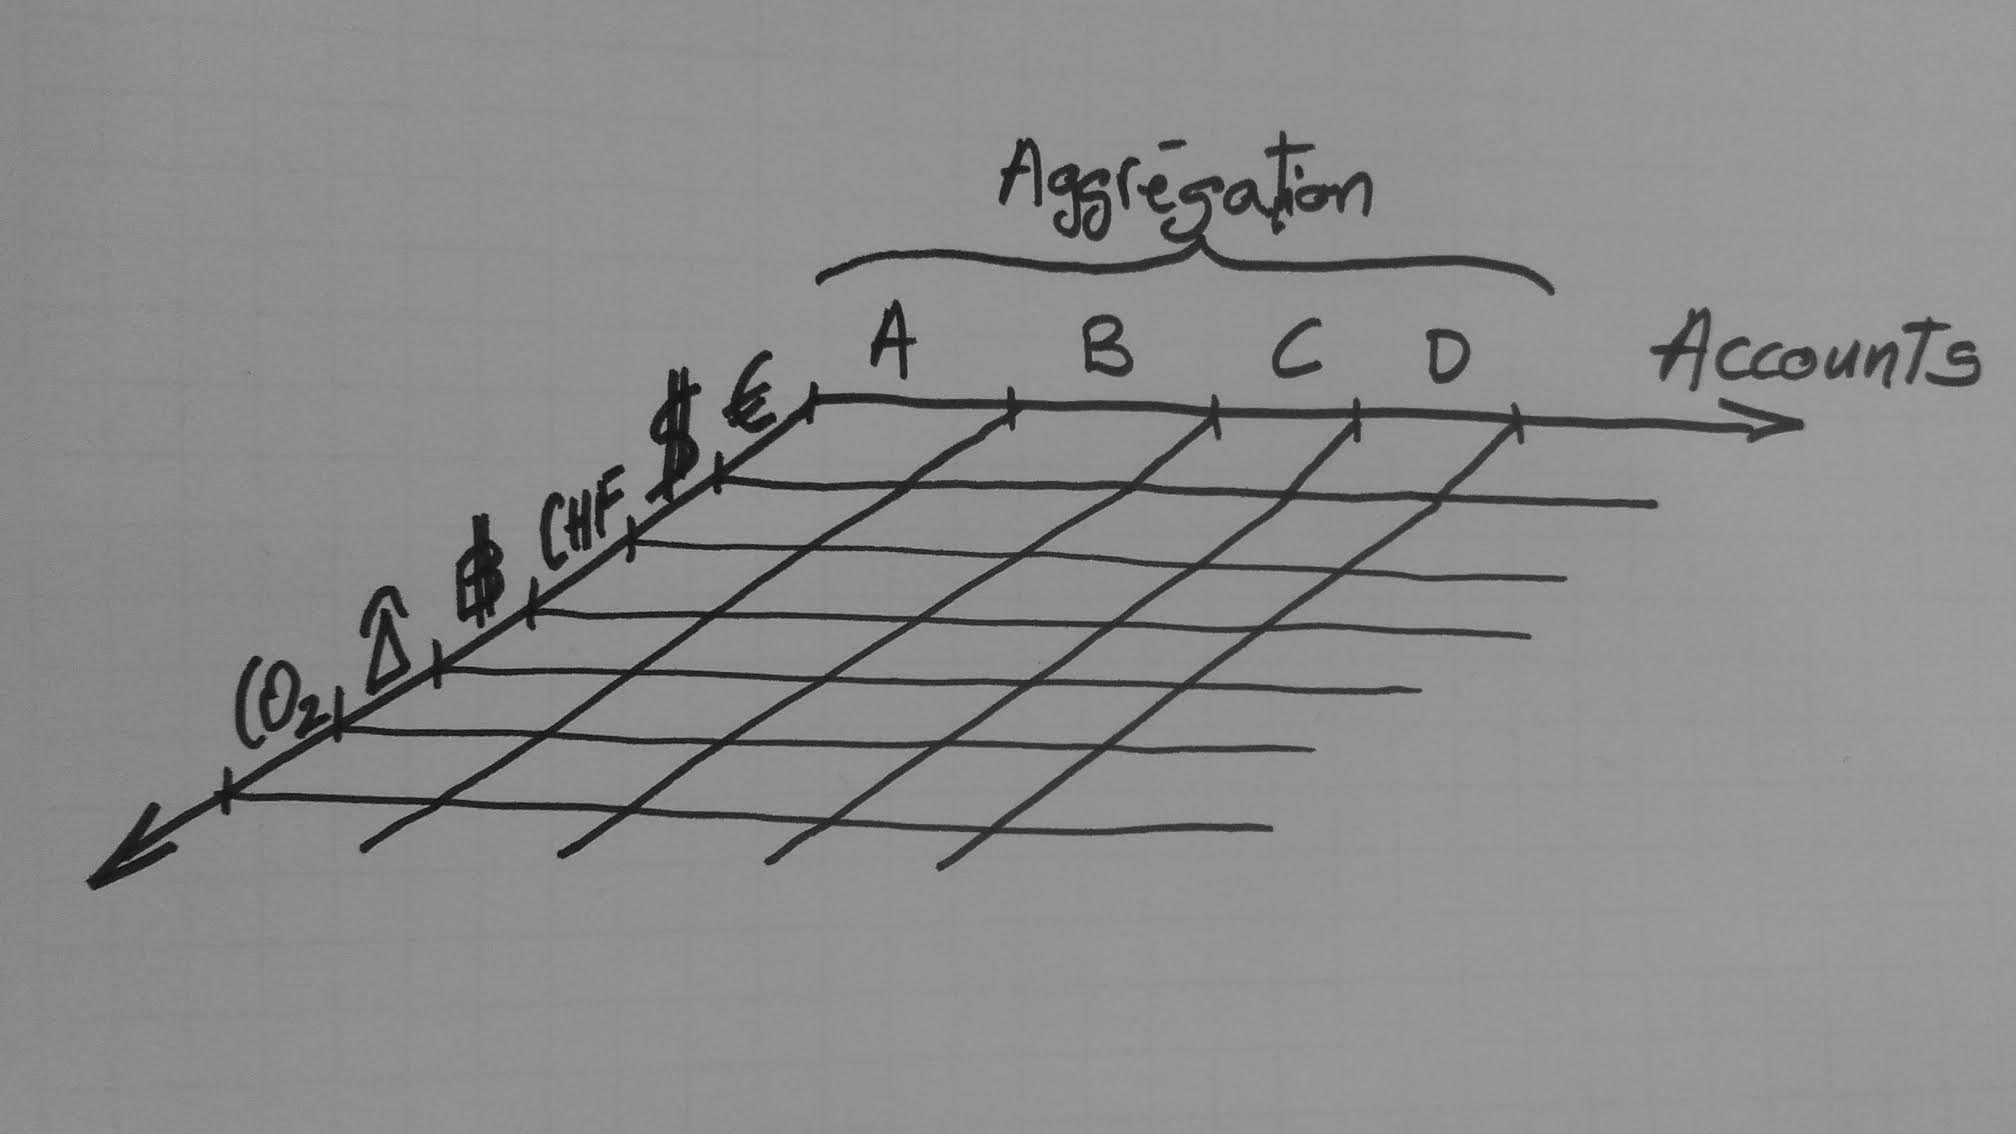 Aggrégation
A B C D Accounts
€
$
CHF
฿
CO₂